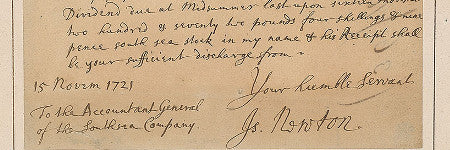 Dividend due at Midsummer last upon sixteen thousand
two hundred & seventy two pounds four shillings &
pence south sea stock in my name & his Receipt shall
be your sufficient discharge from.
Your humble Servant
15 Novem 1721
To the Accountant General
of the Southsea Company.
Is. Newton.